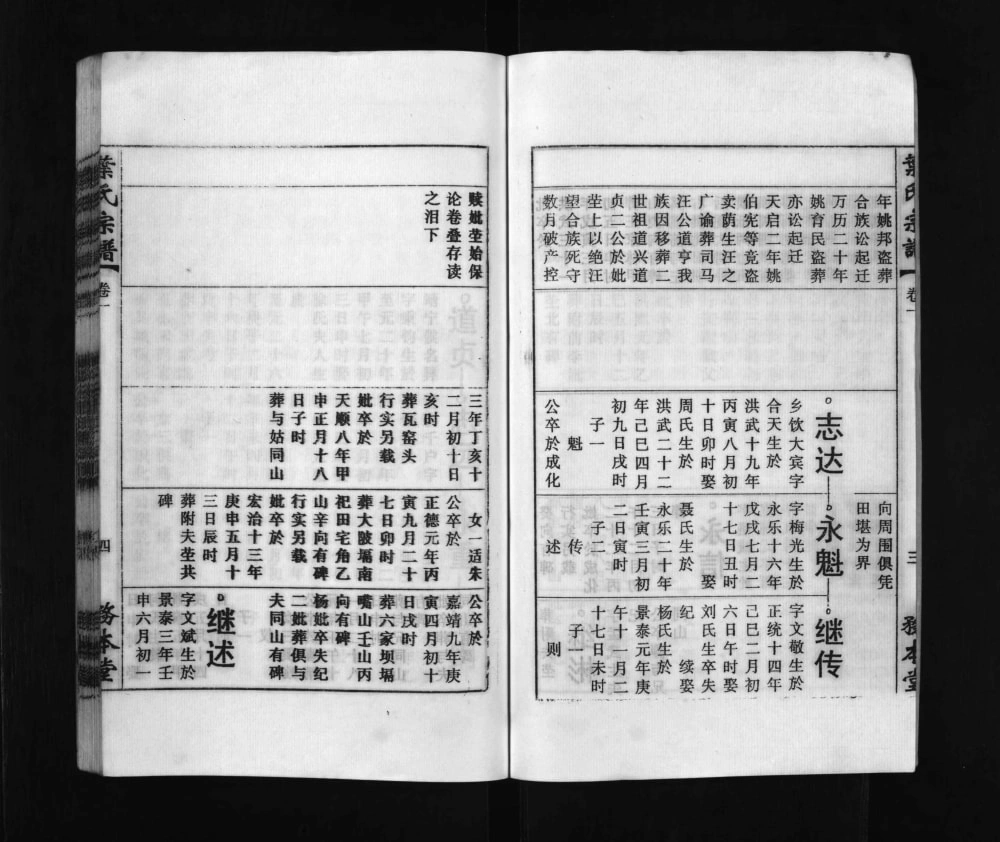 葉氏宗譜
卷一
三
務本堂
年姚邦盗葬
合族讼起迁
万历二十年
姚育民盗葬
亦讼起迁
天启二年姚
伯宪等竟盗
卖荫生汪之
广谕葬司马
汪公道亨我
族因移葬二
世祖道兴道
贞二公於妣
茔上以绝汪
望合族死守
数月破产控
志达
乡饮大宾字
合天生於
洪武十九年
丙寅八月初
十日卯时娶
周氏生於
洪武二十二
年己巳四月
初九日戌时
子一
魁
公卒於成化
向周围俱凭
田堪为界
永魁
字梅光生於
永乐十六年
戊戌七月二
十七日丑时
娶
聂氏生於
永乐二十年
壬寅三月初
二日寅时
子二
传
述
继传
字文敬生於
正统十四年
己巳二月初
六日午时娶
刘氏生卒失
纪 续娶
杨氏生於
景泰元年庚
午十一月二
十七日未时
子一
则
赎妣茔始保
论卷叠存读
之泪下
三年丁亥十
二月初十日
亥时
葬瓦窑头
行实另载
妣卒於
天顺八年甲
申正月十八
日子时
葬与姑同山
女一适朱
公卒於
正德元年丙
寅九月二十
七日卯时
葬大陂塥南
祀田宅角乙
山辛向有碑
行实另载
妣卒於
宏治十三年
庚申五月十
三日辰时
葬附夫茔共
碑
公卒於
嘉靖九年庚
寅四月初十
日戌时
葬六家坝塥
嘴山壬山丙
向有碑
杨妣卒失纪
二妣葬俱与
夫同山有碑
继述
字文斌生於
景泰三年壬
申六月初一
葉氏宗譜
卷一
四
務本堂